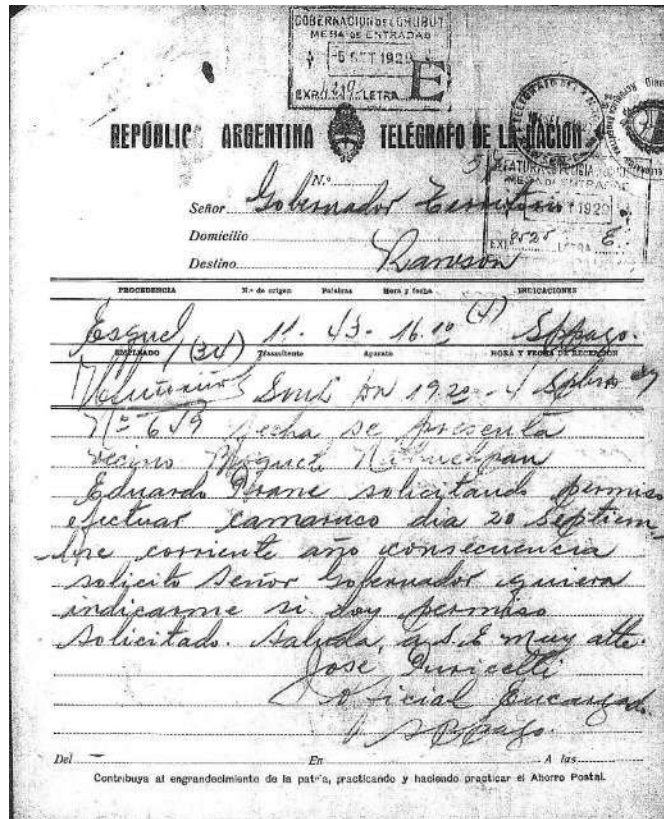 GOBERNACION DEL CHUBUT
MESA DE ENTRADAS
-5 SET 1929
EXP. LETRA E
REPÚBLICA ARGENTINA TELÉGRAFO DE LA NACION
JEFATURA DE POLICIA
MESA DE ENTRADAS
N.º
Señor Gobernador Territorio
EXP. 8525 LETRA E
Domicilio
Destino Rawson
PROCEDENCIA N.º de origen Palabras Hora y fecha INDICACIONES
Esquel (34) 11- 43- 16.10 (4) Sppago.
EMPLEADO Trasmitente Aparato HORA Y FECHA DE RECEPCIÓN
19.20 - 4
Nº 649 fecha se presenta
vecino Nahuelpan
Eduardo Prane solicitando permiso
efectuar camaruco dia 20 Septiem
bre corriente año consecuencia
solicito Señor Gobernador quiera
indicarme si doy permiso
solicitado. Saluda, a S.E muy atte.
Jose Puricelli
Oficial Encargado
Sppago.
Del En A las
Contribuya al engrandecimiento de la patria, practicando y haciendo practicar el Ahorro Postal.